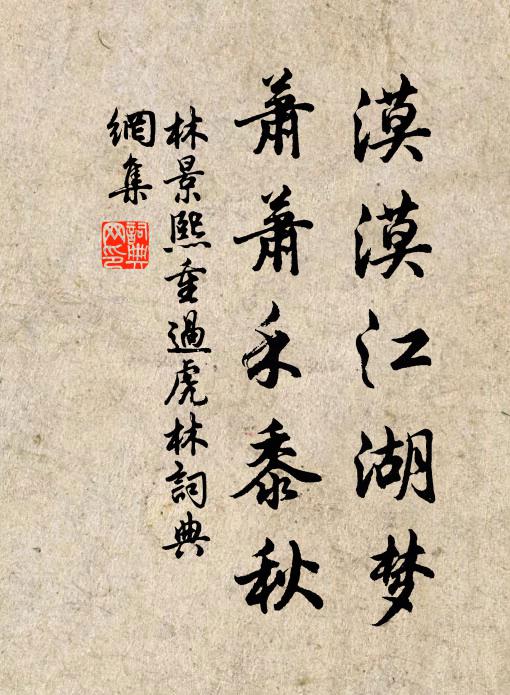 漠漠江湖梦
蕭蕭禾黍秋
林景熙重過虎林詞典
網集
詞典
网印